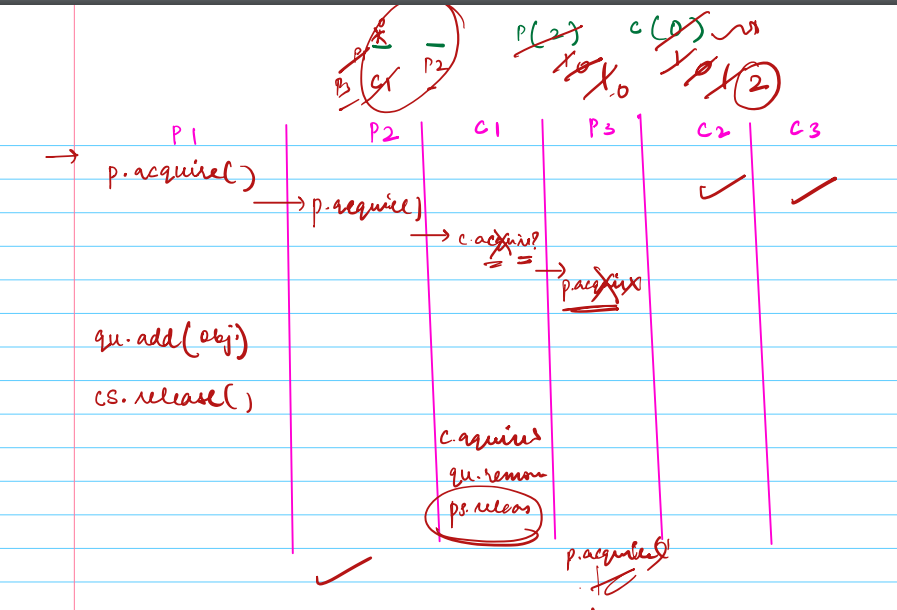 P(2) C(0)
P2
P3 C1
0 2
P1 P2 C1 P3 C2 C3
p.acquire()
p.acquire()
c.acquire?
p.acquire
qu.add(obj)
cs.release()
c.aquires
qu.remov
ps.releas
p.acquire